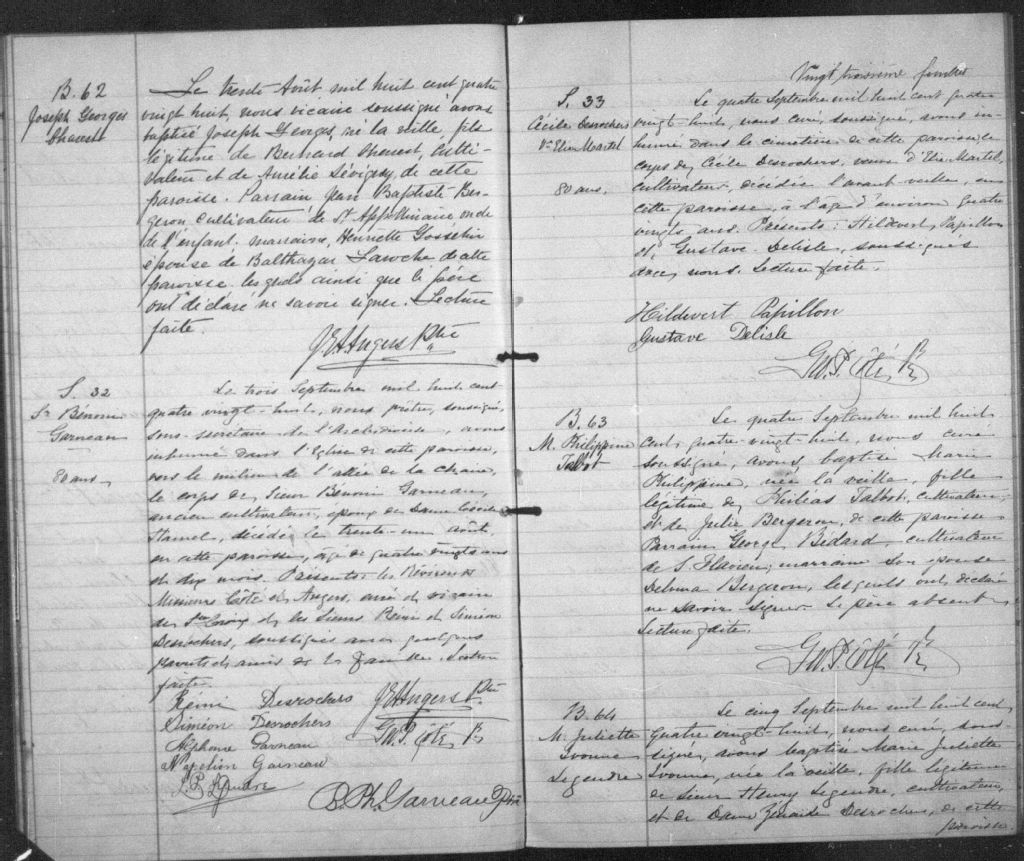 B. 62
Joseph Georges
Charest
Le trente Août mil huit cent quatre
vingt huit, nous vicaire soussigné avons
baptisé Joseph Georges, né la veille, fils
légitime de Bernard Charest, Culti-
vateur et de Aurélie Sévigny, de cette
paroisse. Parrain Jean Baptiste Ber-
geron Cultivateur de St Appolinaire oncle
de l'enfant. marraine, Henriette
épouse de Balthazar Laroche de cette
paroisse. lesquels ainsi que le père
ont déclaré ne savoir signer. Lecture
faite.
J.E.A Angers Ptre
S. 32
Sr Bénoni
Garneau
80 ans
Le trois Septembre mil huit cent
quatre vingt-huit, nous prêtre, soussigné,
sous-secrétaire de l'Archidiocèse, avons
inhumé dans l'Eglise de cette paroisse,
vers le milieu de l'allée de la chaire,
le corps de Sieur Bénoni Garneau,
ancien cultivateur, époux de Dame
Hamel, décédé le trente-un août,
en cette paroisse, âgé de quatre vingts ans
et dix mois. Présents: les Révérends
Messieurs Côté et Angers, curé et vicaire
de Ste Croix et les Sieurs Rémi et Siméon
Desrochers, soussignés avec quelques
parents et amis de la famille. Lecture
faite.
Rémi Desrochers J.E.A Angers Ptre
Siméon Desrochers Geo. P. Côté, Pr
Alphonse Garneau
Napoléon Garneau
B. Ph. Garneau Ptre
Vingt troisième feuillet
S. 33
Cécile Desrochers
Ve Elie Martel
80 ans.
Le quatre Septembre mil huit cent quatre
vingt-huit, nous curé, soussigné, avons in-
humé dans le cimetière de cette paroisse, le
corps de Cécile Desrochers, veuve d'Elie Martel,
cultivateur, décédée l'avant veille, en
cette paroisse, à l'âge d'environ quatre
vingts ans. Présents: Hildevert Papillon
et Gustave Delisle, soussignés
avec nous. Lecture faite.
Hildevert Papillon
Gustave Delisle
Geo. P. Côté, Pr
B. 63
M. Philippine
Talbot
Le quatre Septembre mil huit
cent quatre-vingt-huit, nous curé
soussigné, avons baptisé Marie
Philippine, née la veille, fille
légitime de Philéas Talbot, cultivateur,
et de Julie Bergeron, de cette paroisse
Parrain George Bédard, cultivateur
de S. Flavien; marraine son épouse
Delima Bergeron, lesquels ont déclaré
ne savoir signer. Le père absent.
Lecture faite.
Geo. P. Côté Pr
B. 64
M. Juliette
Ivonne
Legendre
Le cinq Septembre mil huit cent
quatre vingt-huit, nous curé, sous-
signé, avons baptisé Marie Juliette
Ivonne, née la veille, fille légitime
de Sieur Henry Legendre, cultivateur,
et de Dame Zénaïde Desrochers, de cette
paroisse